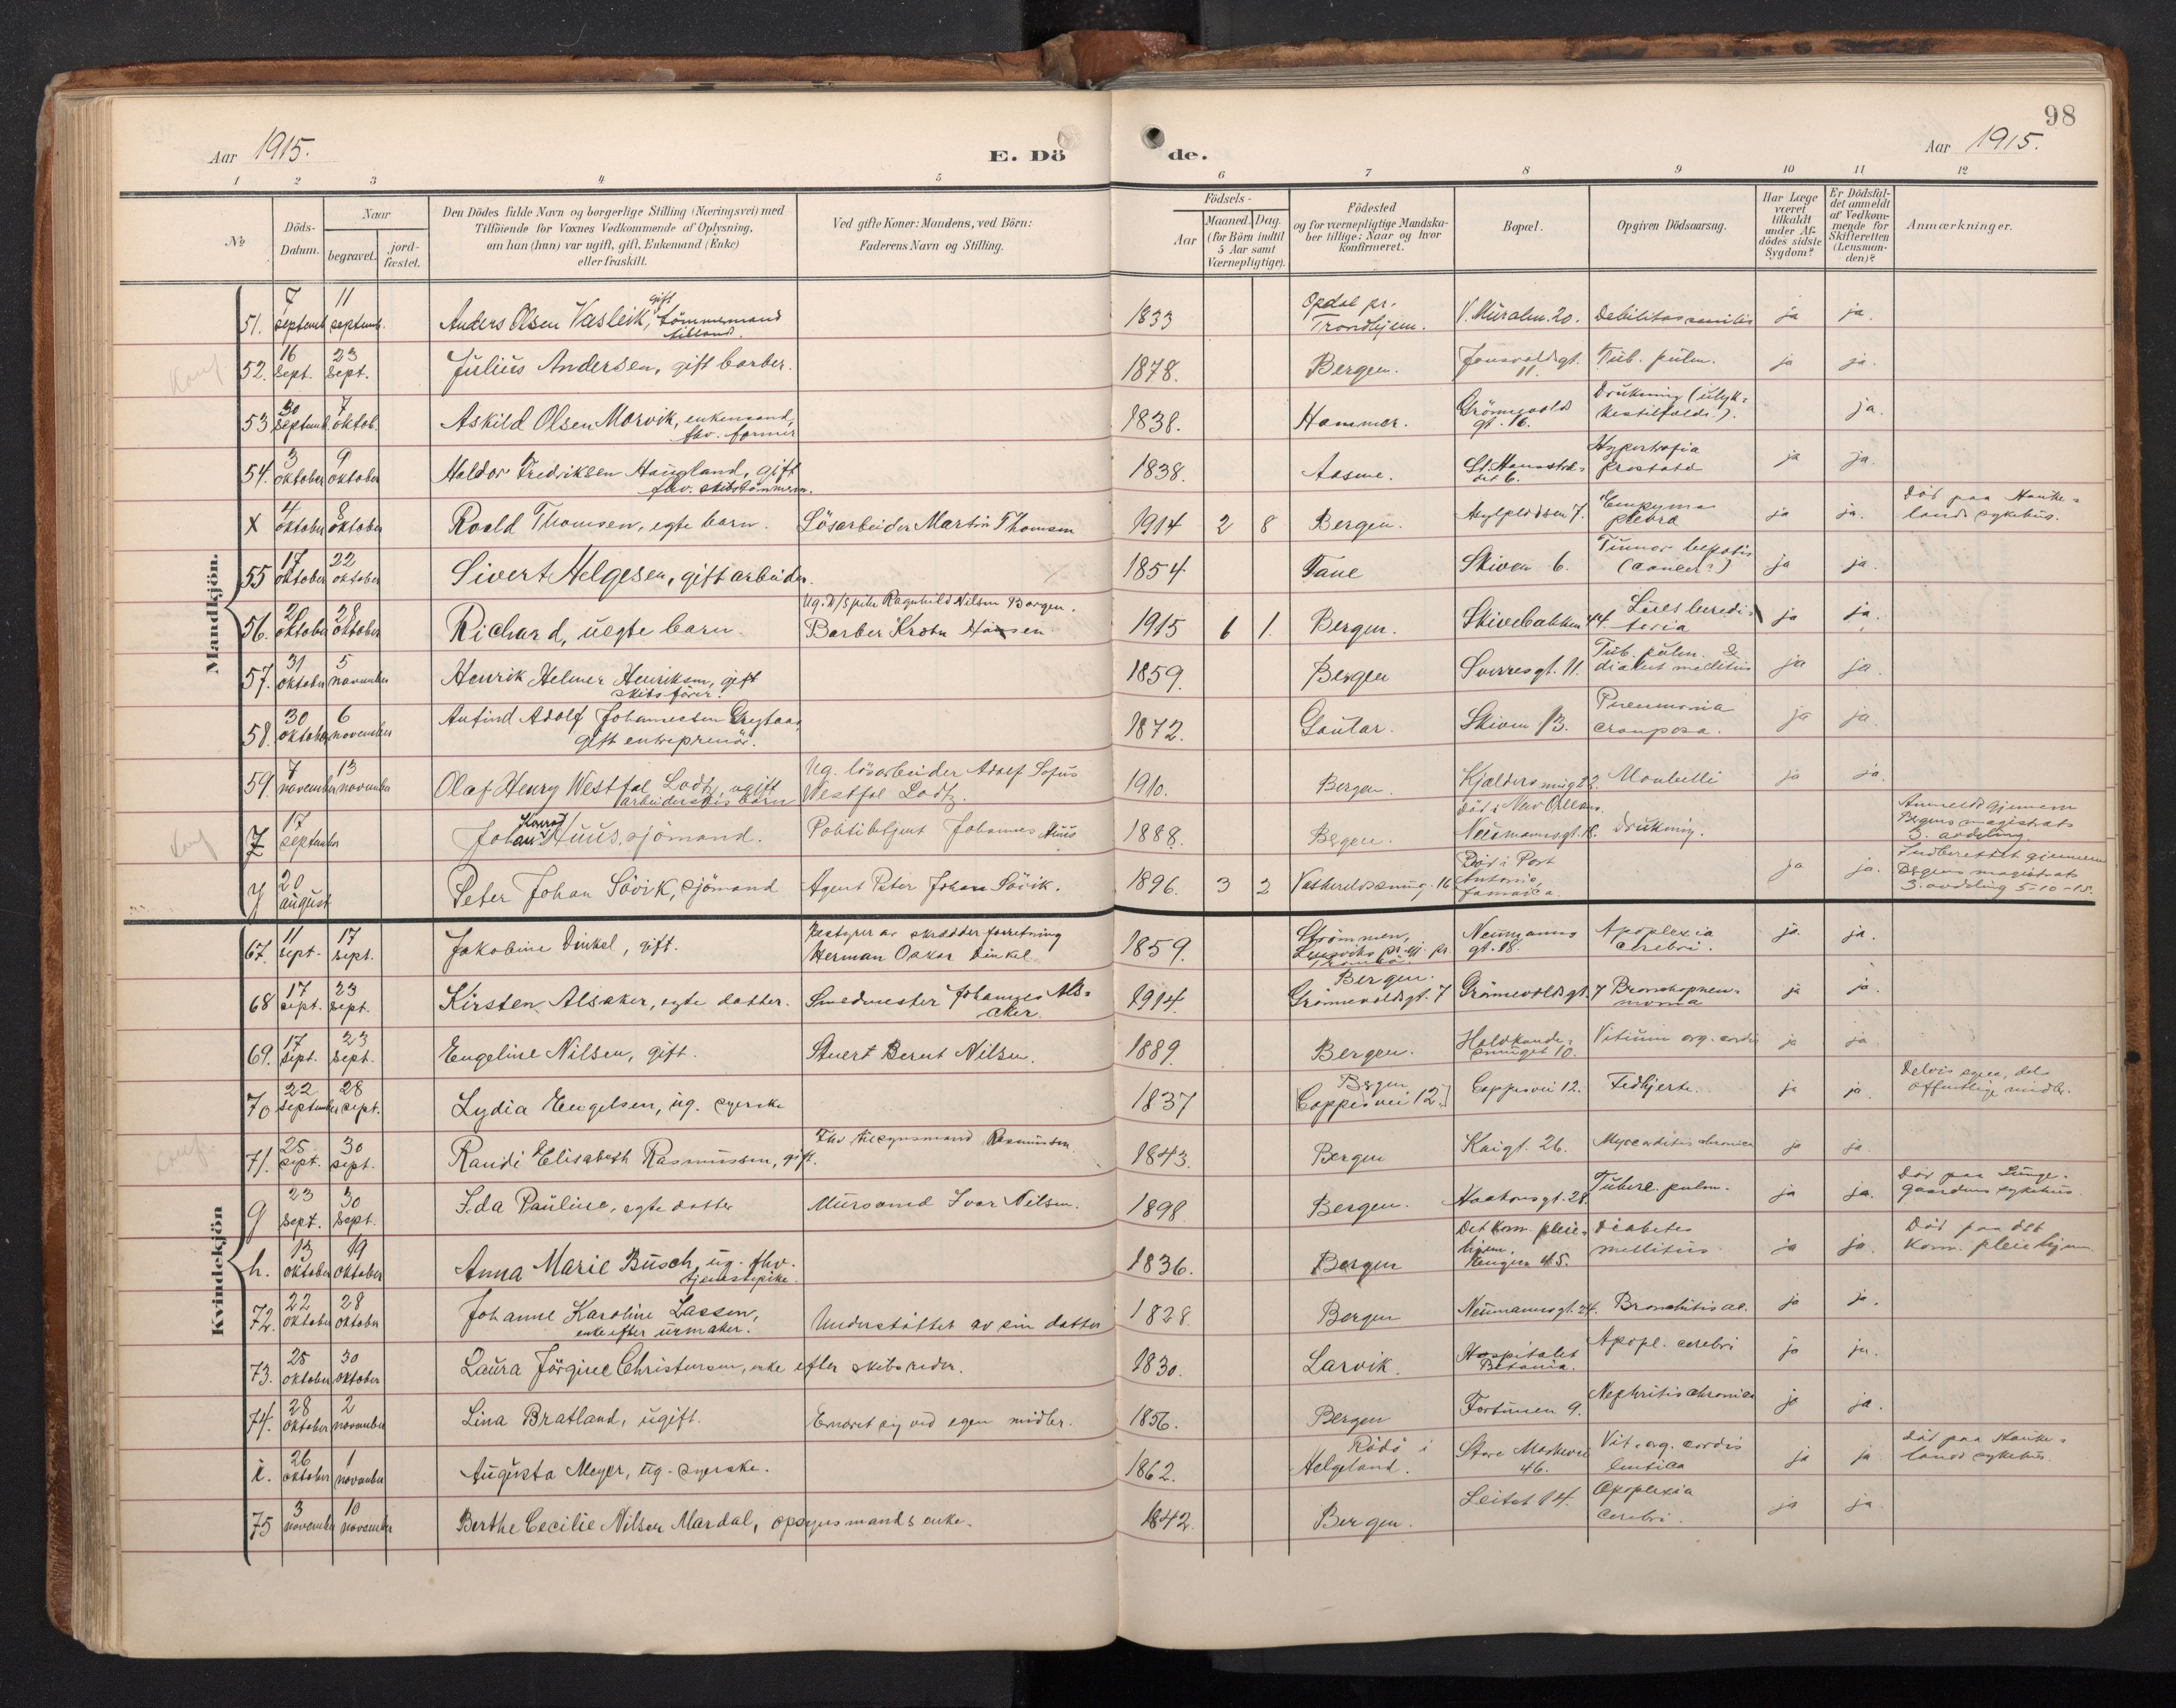 98
Aar 1915.
E. Döde.
Aar 1915.
1 2 3 4 5 6 7 8 9 10 11 12
№
Döds-Datum.
Naar
begravet.
jord-fæstet.
Den Dödes fulde Navn og borgerlige Stilling (Næringsvei) med
Tilföiende for Voxnes Vedkommende af Oplysning,
om han (hun) var ugift, gift, Enkemand (Enke)
eller fraskilt.
Ved gifte Koner: Mandens, ved Börn:
Faderens Navn og Stilling.
Födsels-
Aar
Maaned. Dag.
(for Börn indtil
5 Aar samt
Værnepligtige).
Födested
og for værnepligtige Mandska-
ber tillige: Naar og hvor
konfirmeret.
Bopæl.
Opgiven Dödsaarsag.
Har Læge
været
tilkaldt
under Af-
dödes sidste
Sygdom?
Er Dödsfal-
det anmeldt
af Vedkom-
mende for
Skifteretten
(Lensman-
den)?
Anmærkninger.
Mandkjön.
51. 7 septemb. 11 septemb. Anders Olsen Vasleik, gift tömmermand 1833 Opdal pr. Trondhjem. V. Muralm. 20. Debilitas senilis ja ja.
52. 16 sept. 23 sept. Julius Andersen, gift barber. 1878. Bergen. 11. Tub. pulm. ja ja.
53 30 septemb. 7 oktob. Askild Olsen Morvik, enkemand, fhv. former 1838. Hammer. Grönnevolds gt. 16. Drukning (ulyk-kestilfælde). ja.
54. 3 oktober 9 oktober Haldor Fredriksen Haugland, gift fhv. skibstömmerm. 1838. St. Hansstrædet 6. Hypertrofia prostata ja ja.
X 4 oktober 8 oktober Roald Thomsen, egte barn. Lösarbeider Martin Thomsen 1914 2 8 Bergen. Empyema pleura ja ja. Död paa Hauke-lands sykehus.
55 17 oktober 22 oktober Sivert Helgesen, gift arbeider. 1854 Fane Skiven 6. Tumor hepatis (cancer?) ja ja.
56. 20 oktober 28 oktober Richard, uegte barn. Ug. Ragnhild Nilsen Bergen. Barber Hansen 1915 6 1. Bergen. Skivebakken 44. Lues heredi-taria ja ja.
57. 31 oktober 5 november Henrik Helmer Henriksen, gift skibsförer. 1859. Bergen Sverresgt. 11. Tub. pulm. & diabet mellitus ja ja.
58. 30 oktober 6 november Anfind Adolf Johannessen gift entreprenör. 1872. Gaular. Skiven 13. Pneumonia crouposa. ja ja.
59. 7 november 13 november Olaf Henry Westfal Lodtz, ugift arbeiderskes barn Ug. lösarbeider Adolf Sofus Westfal Lodtz. 1910. Bergen. Kjeldersmug 22. Morbilli ja ja.
Z 17 september Johan Konrad Huus, sjömand. Politibetjent Johannes Huus 1888. Bergen. Död i New Orleans. Neumannsgt. 18. Drukning. Anmeldt gjennem Bergens magistrats 3. avdeling.
Y 20 august Peter Johan Sövik, sjömand Agent Peter Johan Sövik. 1896. 3 2 16 Död i Port Antonio, Jamaica. ja ja. Indberettet gjennem Bergens magistrats 3. avdeling 5-10-15.
Kvindekjön
67. 11 sept. 17 sept. Jakobine Dinkel, gift. Bestyrer av skrædderforretning Herman Oskar Dinkel 1859. Strömmen, Neumanns gt. 18. Apoplexia cerebri. ja ja.
68 17 sept. 23 sept. Kirsten Alsaker, egte datter. Smedmester Johannes Als-aker. 1914. Bergen. Grönnevoldsgt. 7 Grönnevoldsgt. 7 Bronchopneu-monia ja ja.
69. 17 sept. 23 sept. Engeline Nilsen, gift. Stuert Bernt Nilsen. 1889. Bergen. smuget 10. Vitium org. cordis ja ja
70 22 september 28 sept. Lydia Engelsen, ug. syerske 1837 Bergen [Cappesvei 12.] Cappesvei 12. Fedthjerte. ja ja. Delvis egne, dels offentlige midler.
71. 25 sept. 30 sept. Randi Elisabeth Rasmussen, gift. Fhv. tilsynsmand Rasmussen 1843. Bergen Kaigt. 26. Myocarditis chronica ja ja.
g 23 sept. 30 sept. Ida Pauline, egte datter Mursvend Ivar Nilsen. 1898 Bergen. Haakonsgt. 28. Tuberc. pulm. ja ja. Död paa Lunge-gaardens sykehus.
h. 13 oktober 19 oktober Anna Marie Busch, ug. fhv. tjenestepike. 1836. Bergen Det kom. pleie-hjem. Kongen 45. Diabetes mellitus ja ja. Död paa det kom. pleiehjem
72. 22 oktober 28 oktober Johanne Karoline Lassen, enke efter urmaker. Understöttet av sin datter 1828. Bergen Neumannsgt. 24. Bronchitis ac. ja ja.
73. 25 oktober 30 oktober Laura Jörgine Christensen, enke efter skibsreder. 1830. Larvik. Hospitalet Betania. Apopl. cerebri ja ja.
74. 28 oktober 2 november Lina Bratland, ugift. Ernæret sig ved egen midler. 1856. Bergen Fortunen 9. Nephritis chronica ja ja.
i. 26 oktober 1 november Augusta Meyer, ug. syerske. 1862. Rödö i Helgeland. Store Markevei 46. Vit. org. cordis ja ja Död paa Hauke-lands sykehus.
75 3 november 10 november Berthe Cecilie Nilsen Mardal, opsynsmands enke. 1842. Bergen. Leitet 14. Apoplexia cerebri. ja ja.